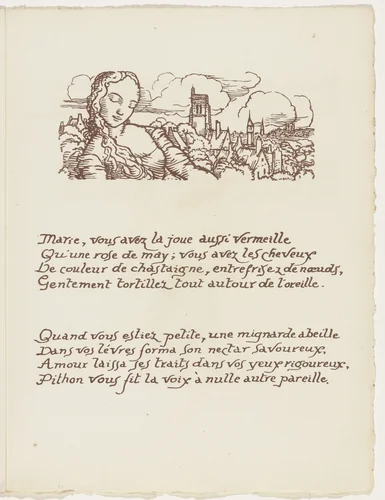 Marie, vous avez la joue aussi vermeille
Qu'une rose de may ; vous avez les cheveux
De couleur de chastaigne, entrefrisez de nœuds,
Gentement tortillez tout autour de l'oreille.
Quand vous estiez petite, une mignarde abeille
Dans vos lévres forma son nectar savoureux,
Amour laissa ses traits dans vos yeux rigoureux,
Pithon vous fit la voix à nulle autre pareille.